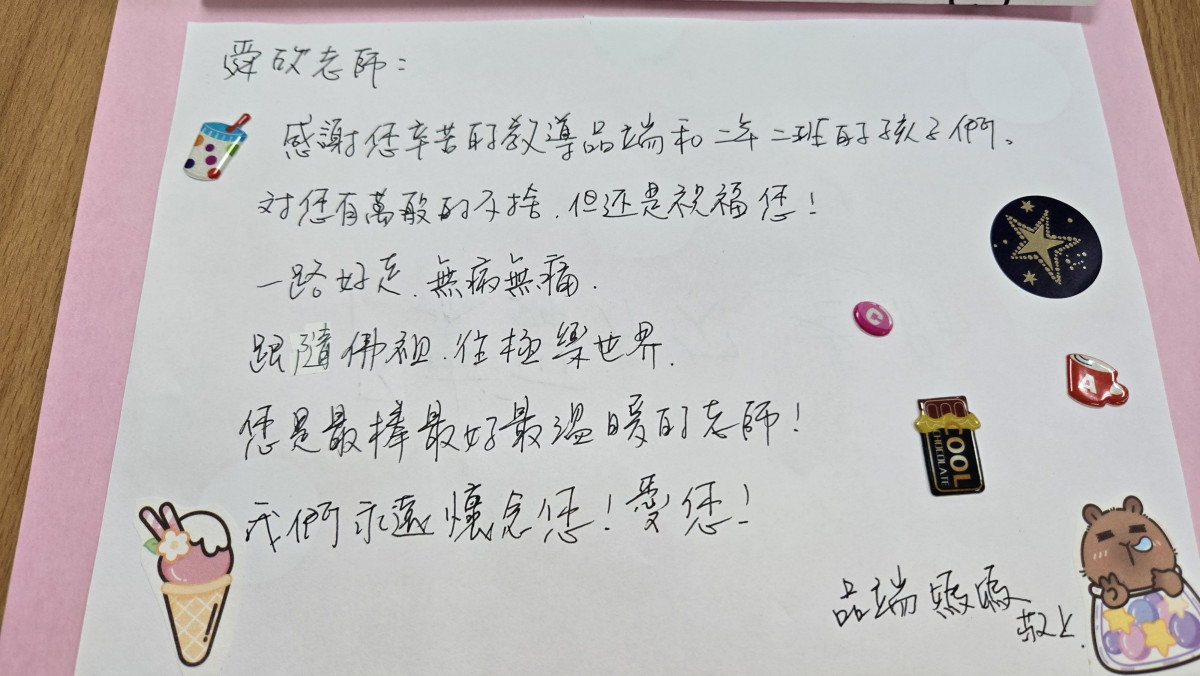 舜欣老師：
感謝您辛苦的教導品端和二年二班的孩子們。
对您有萬般的不捨，但还是祝福您！
一路好走，無病無痛．
跟隨佛祖，往極樂世界．
您是最棒最好最溫暖的老師！
我們永遠懷念您！愛您！
品端媽媽
敬上．
C
A
COOL
CHOCOLATE